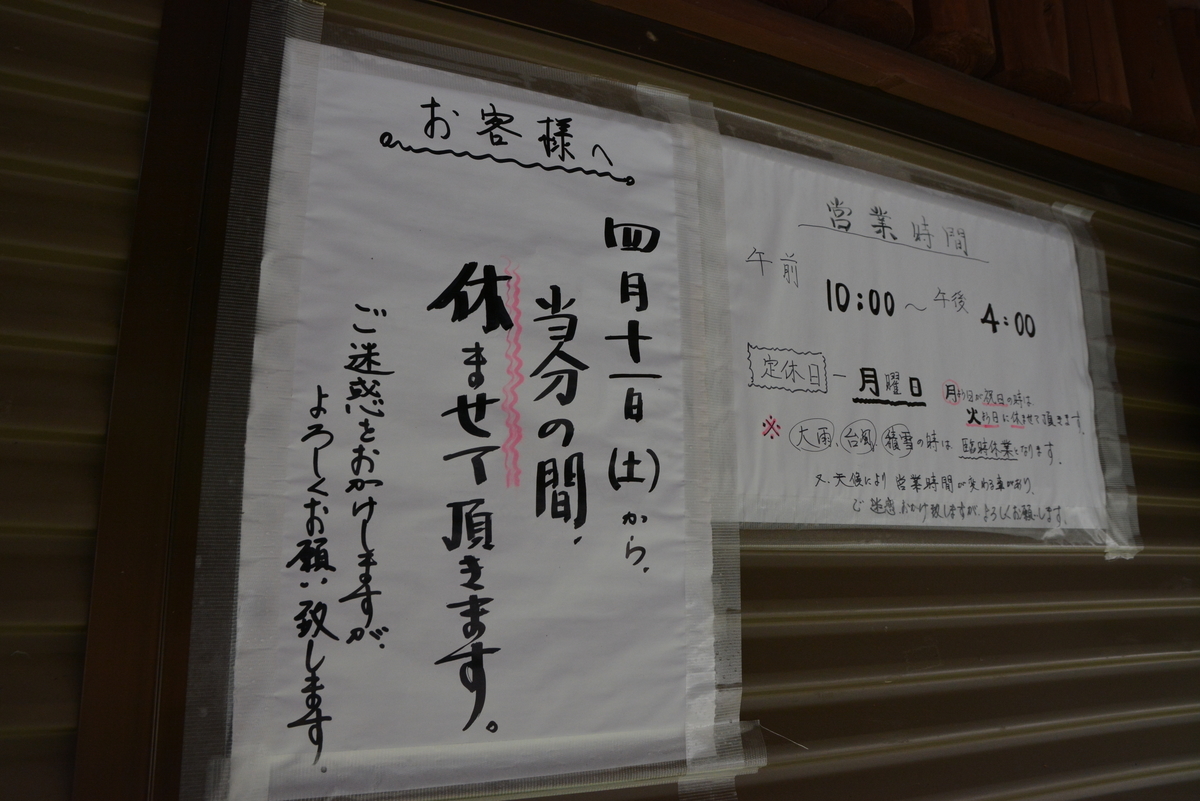 お客様へ
四月十一日(土)から、
当分の間、
休ませて頂きます。
ご迷惑をおかけしますが、
よろしくお願い致します。
営業時間
午前
10:00〜午後4:00
定休日ー月曜日
月曜日が祝日の時は
火曜日に休ませて頂きます。
※大雨、台風、積雪の時は臨時休業となります。
又、天候により営業時間が変わる事があり、
ご迷惑おかけ致しますが、よろしくお願いします。